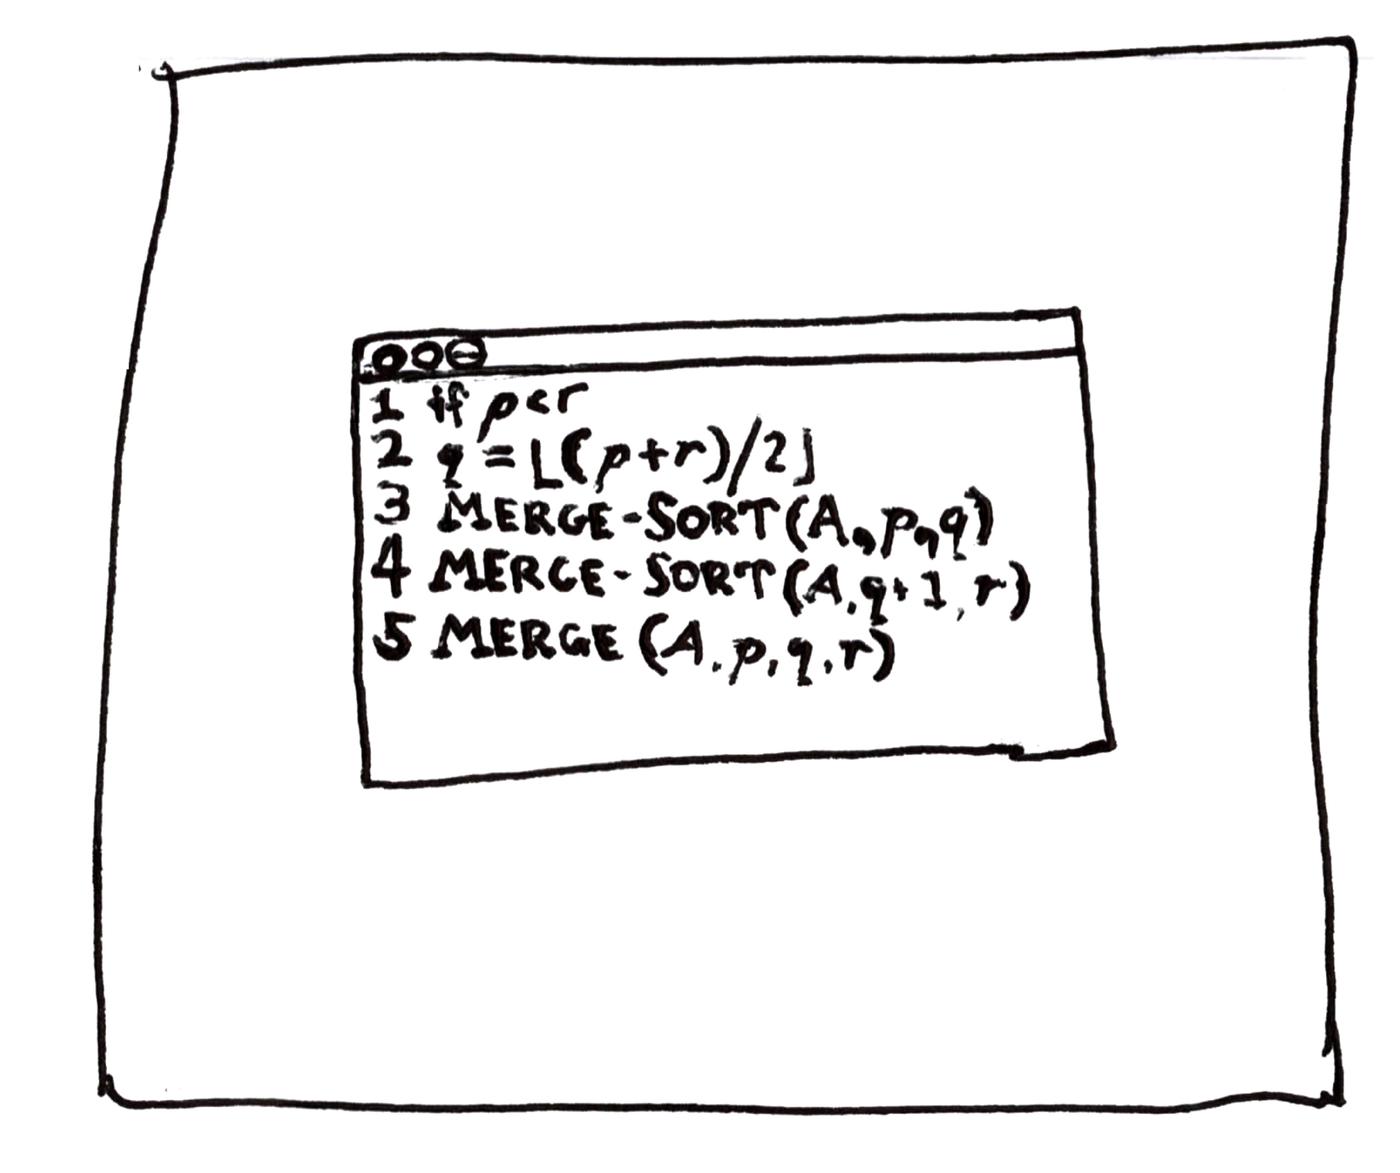 1 if p<r
2 q = ⌊(p+r)/2⌋
3 MERGE-SORT(A,p,q)
4 MERGE-SORT(A,q+1,r)
5 MERGE(A,p,q,r)